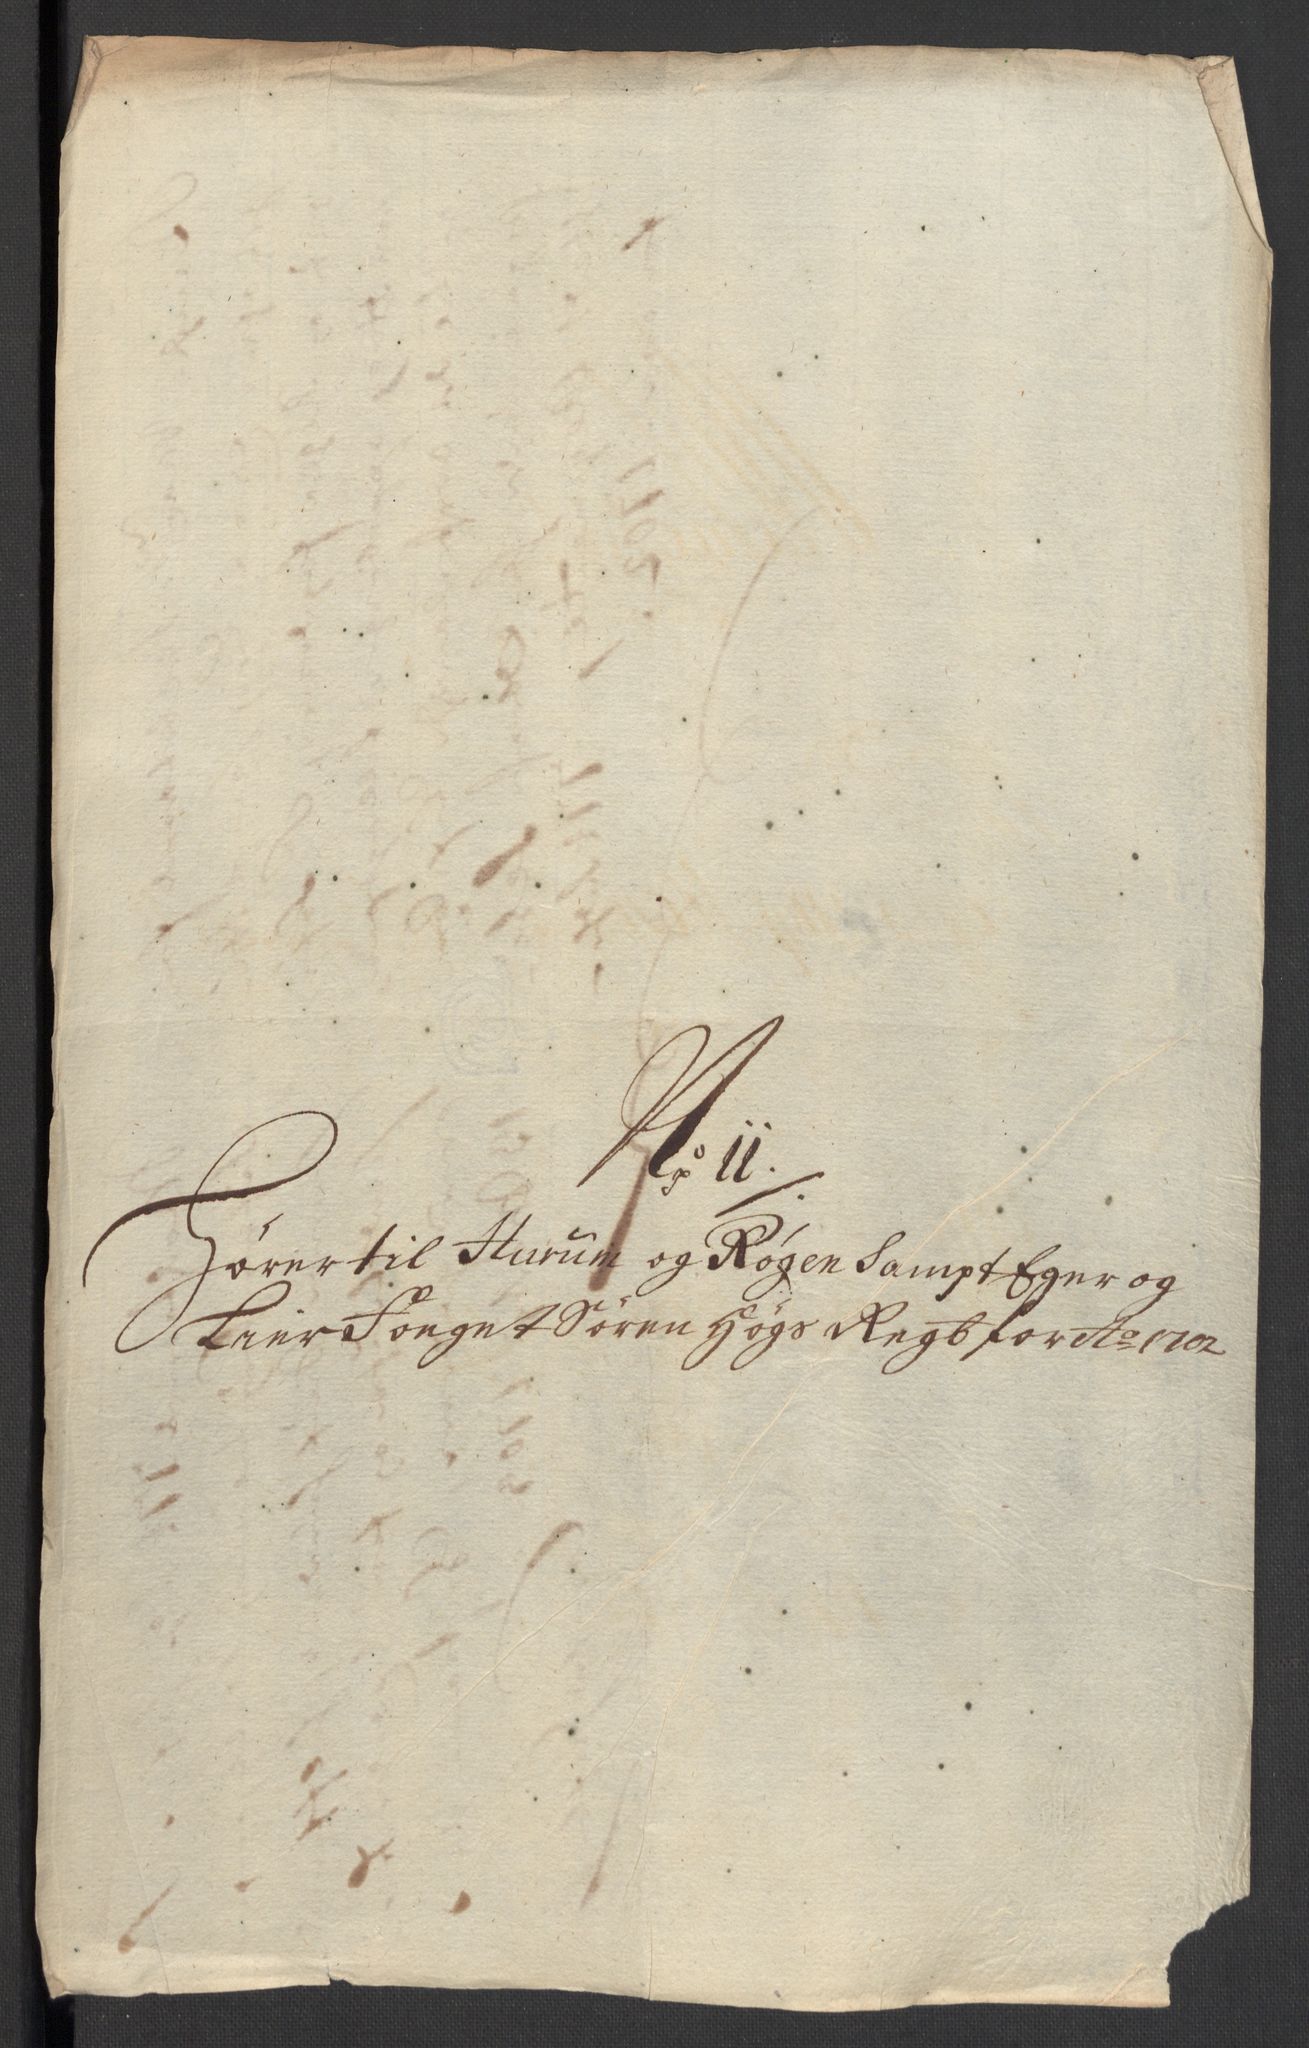 No 11.
Hörer til Hurum og Røgen Sampt Eger og
Lier Foget Sören Högs Regb for Ao 1702